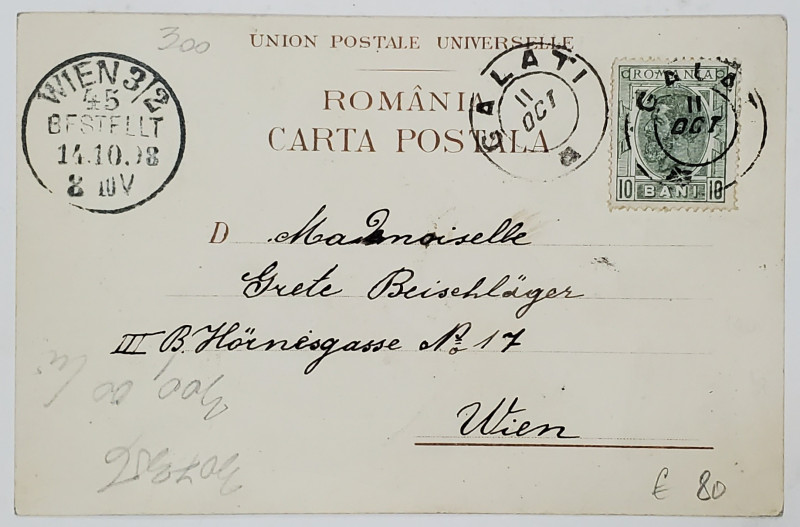 300
UNION POSTALE UNIVERSELLE
ROMÂNI
CARTA POSTALA
WIEN 3/2
45
BESTELLT
14.10.98
8 10V
GALATI
11
OCT
ROMANIA
GALA
11
OCT
10 BANI 10
D Mademoiselle
Grete Beischläger
III B. Hörnesgasse No 17
Wien
€ 80